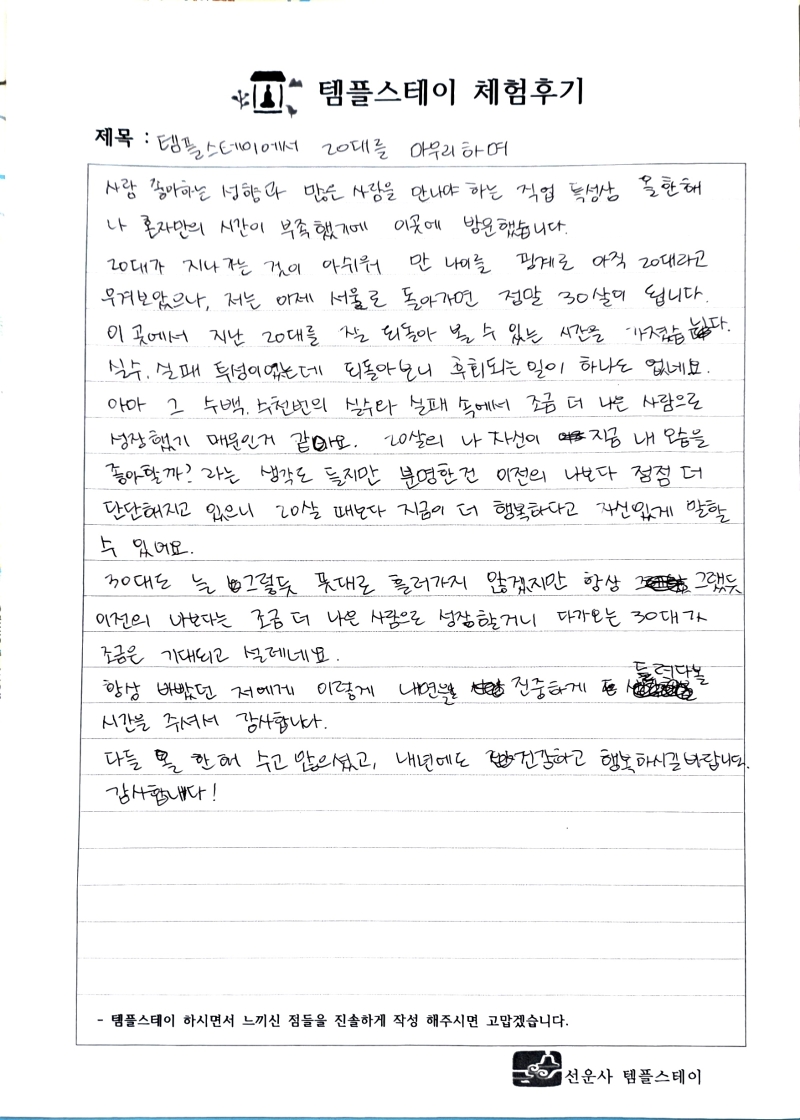 템플스테이 체험후기
제목 : 템플스테이에서 20대를 마무리하며
사람 좋아하는 성향과 많은 사람을 만나야 하는 직업 특성상 올한해
나 혼자만의 시간이 부족했기에 이곳에 방문했습니다.
20대가 지나가는 것이 아쉬워 만 나이를 핑계로 아직 20대라고
우겨보았으나, 저는 이제 서울로 돌아가면 정말 30살이 됩니다.
이 곳에서 지난 20대를 잘 되돌아 볼 수 있는 시간을 가졌습니다.
실수. 실패 투성이였는데 되돌아보니 후회되는 일이 하나도 없네요.
아마 그 수백, 수천번의 실수와 실패 속에서 조금 더 나은 사람으로
성장했기 때문인거 같아요. 20살의 나 자신이 지금 내 모습을
좋아할까? 라는 생각도 들지만 분명한건 이전의 나보다 점점 더
단단해지고 있으니 20살 때보다 지금이 더 행복하다고 자신있게 말할
수 있네요.
30대도 늘 그렇듯 뜻대로 흘러가지 않겠지만 항상 그랬듯
이전의 나보다는 조금 더 나은 사람으로 성장할거니 다가오는 30대가
조금은 기대되고 설레네요.
항상 바빴던 저에게 이렇게 내면을 진중하게 들여다볼
시간을 주셔서 감사합니다.
다들 올 한해 수고 많으셨고, 내년에도 건강하고 행복하시길바랍니다.
감사합니다!
- 템플스테이 하시면서 느끼신 점들을 진솔하게 작성 해주시면 고맙겠습니다.
선운사 템플스테이